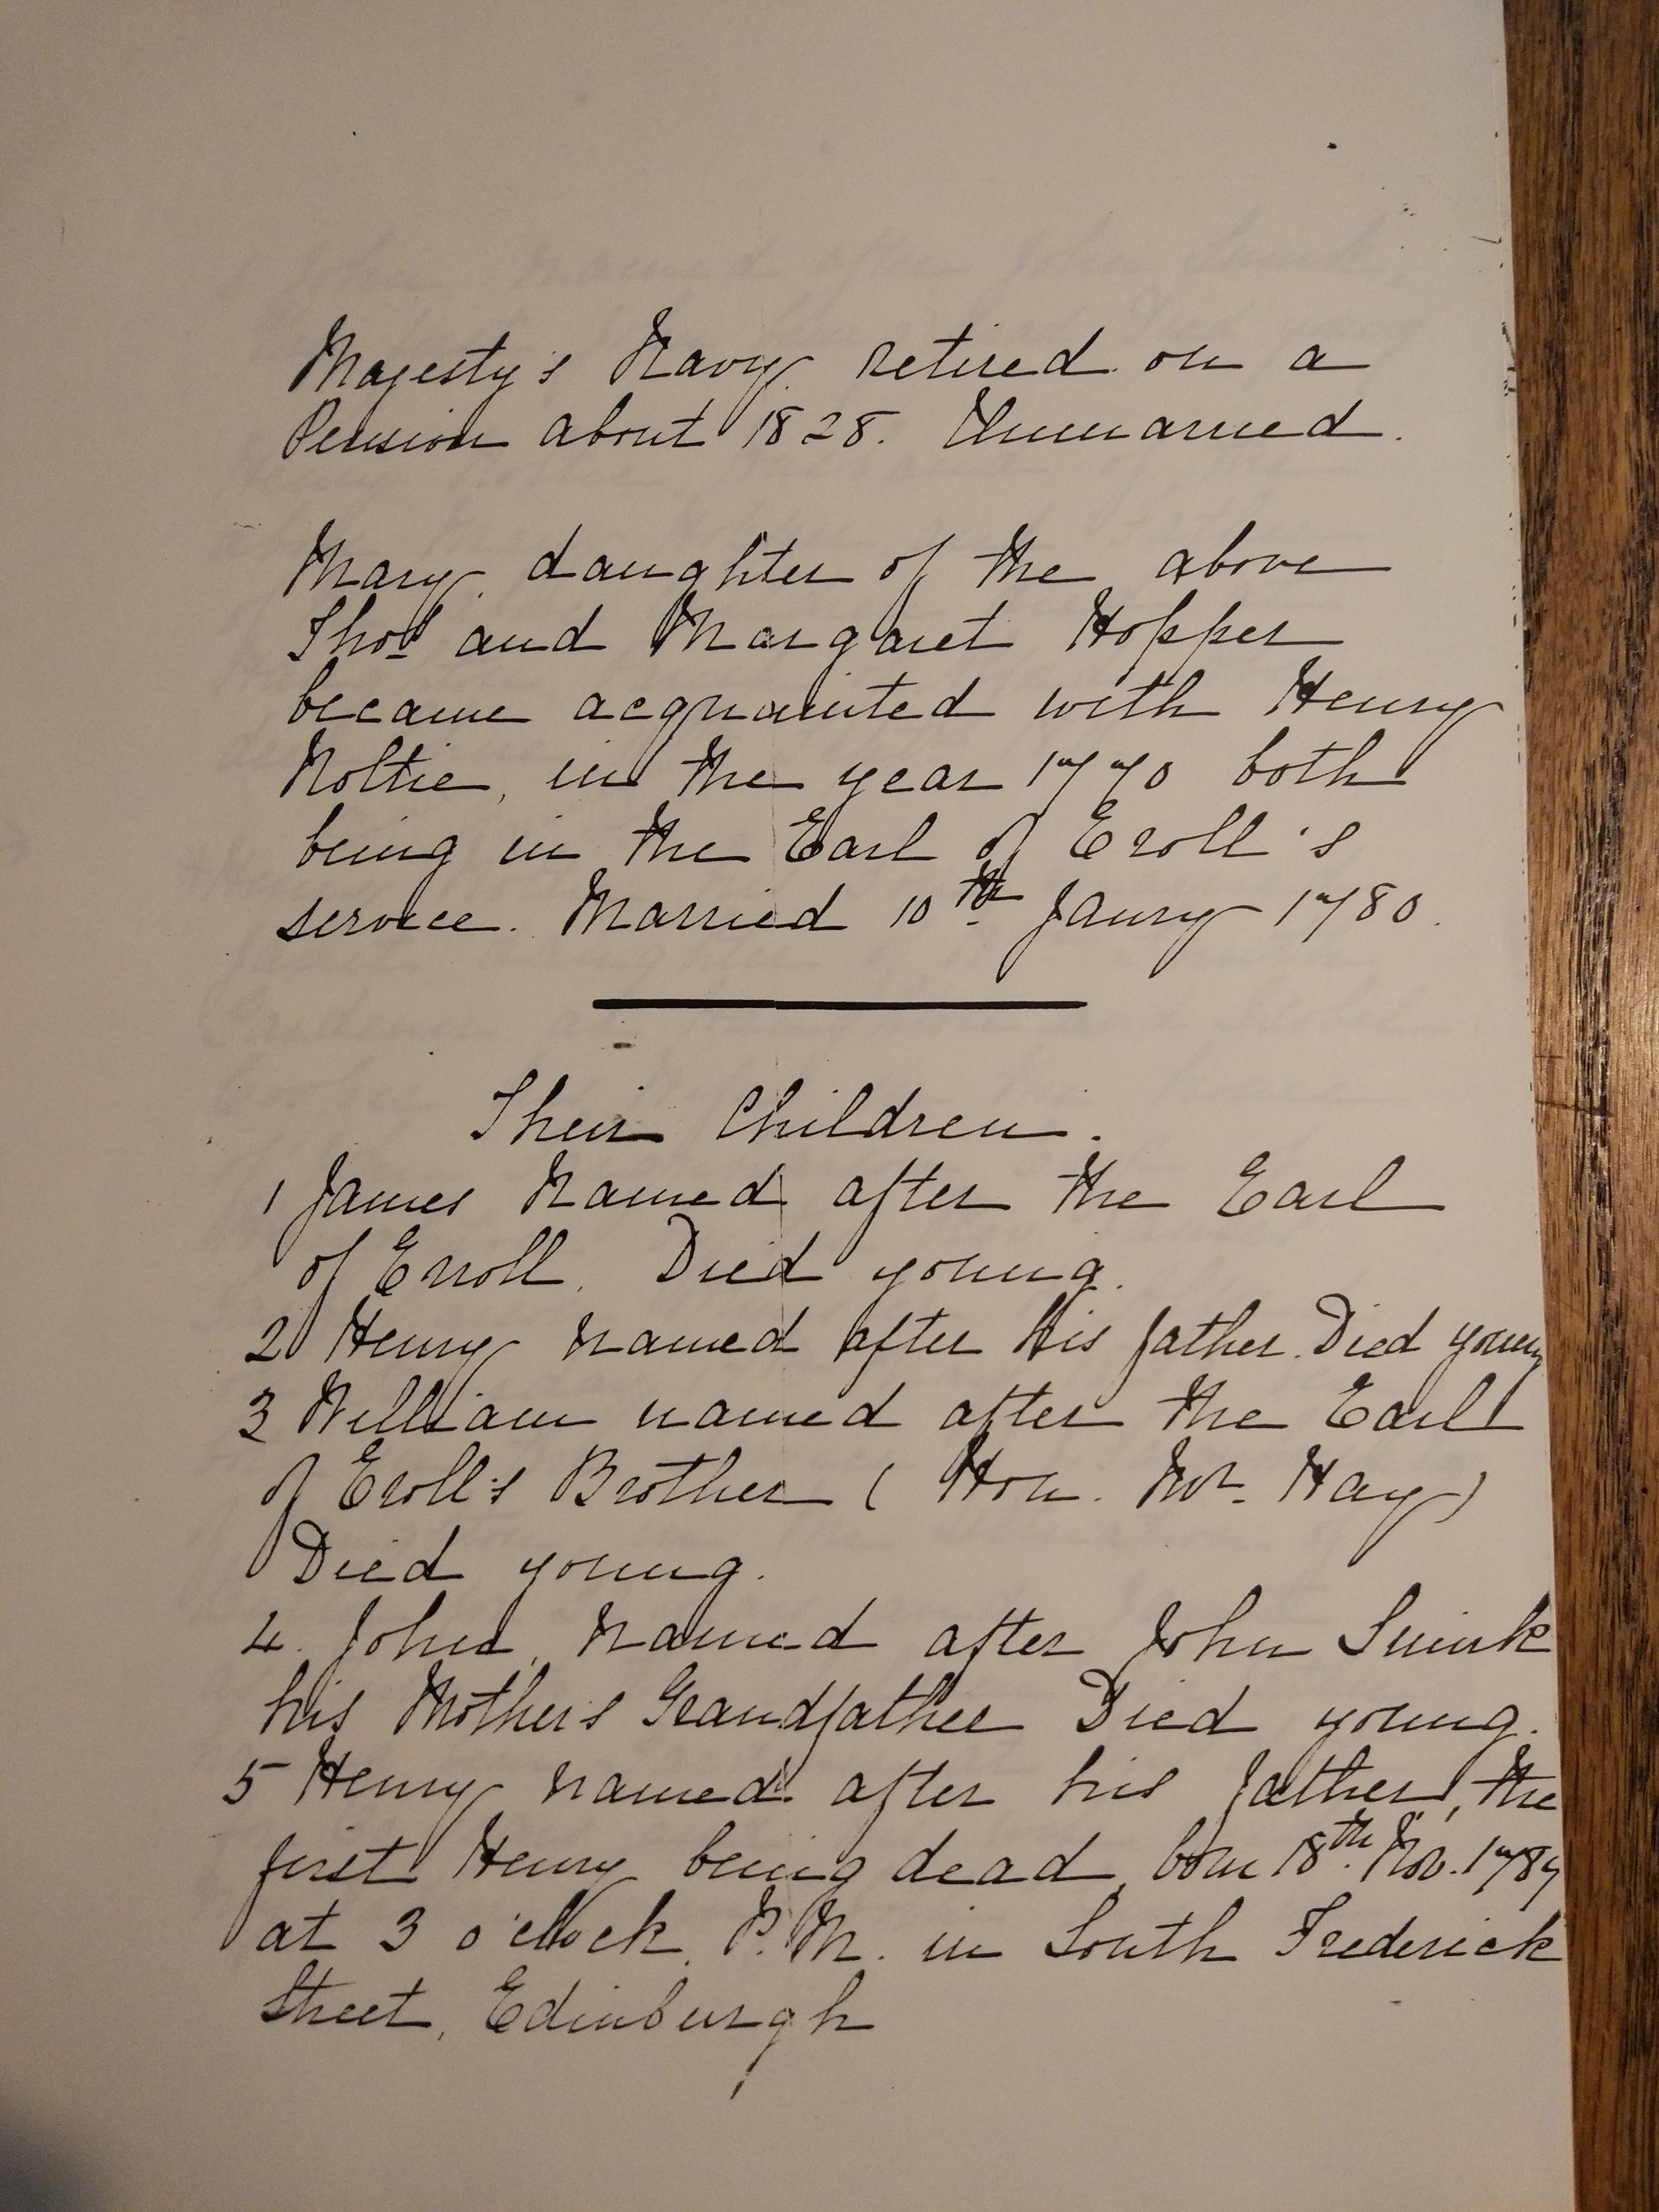 Majesty's Navy. Retired on a
Pension about 1828. Unmarried.
Mary, daughter of the above
Thos and Margaret Hopper
became acquainted with Henry
Noltie, in the year 1770 both
being in the Earl of Eroll's
service. Married 10th Janry 1780.
Their Children.
1 James Named after the Earl
of Erroll. Died young.
2 Henry named after his father. Died young
3 William named after the Earl
of Eroll's Brother ( Hon. Mr. Hay)
Died young.
4. John, Named after John
his Mother's Grandfather Died young.
5 Henry named after his father, the
first Henry being dead, born 18th. Nov. 1789
at 3 o'clock. P.M. in South Frederick
Street, Edinburgh